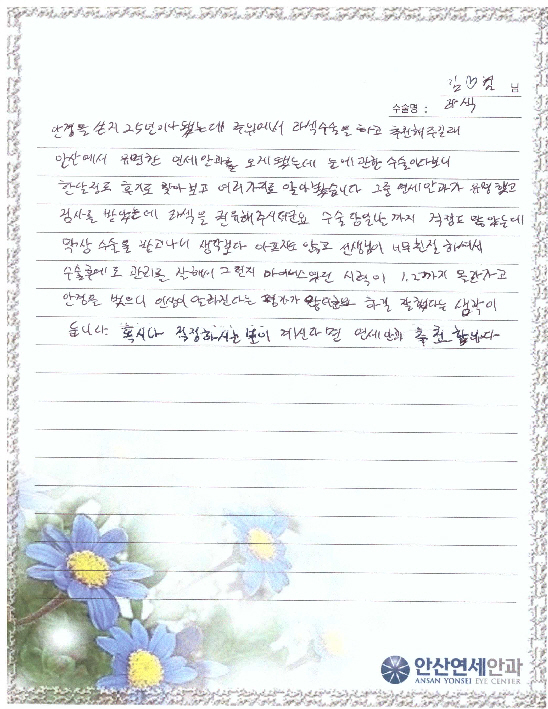 김♡겸 님
수술명 : 라섹
안경을 쓴지 25년이나 됐는데 주위에서 라섹수술을 하고 추천해주길래
안산에서 유명한 연세안과를 오게됐는데 눈에 관한 수술이다보니
한달정도 혼자로 찾아보고 여러가지로 알아봤습니다 그중 연세안과가 유명했고
검사를 받았는데 라섹을 권유해주시더라고요 수술 당일날까지 걱정도 많았는데
막상 수술을 받고나니 생각보다 아프지는 않고 선생님이 너무친절 하셔서
수술후에도 관리를 잘해서 그런지 마이너스였던 시력이 1.2까지 올라가고
안경을 벗으니 인상이 달라진다는 하길 잘했다는 생각이
듭니다. 혹시나 걱정하시는 분이 계신다면 연세안과 추천 합니다
안산연세안과
ANSAN YONSEI EYE CENTER